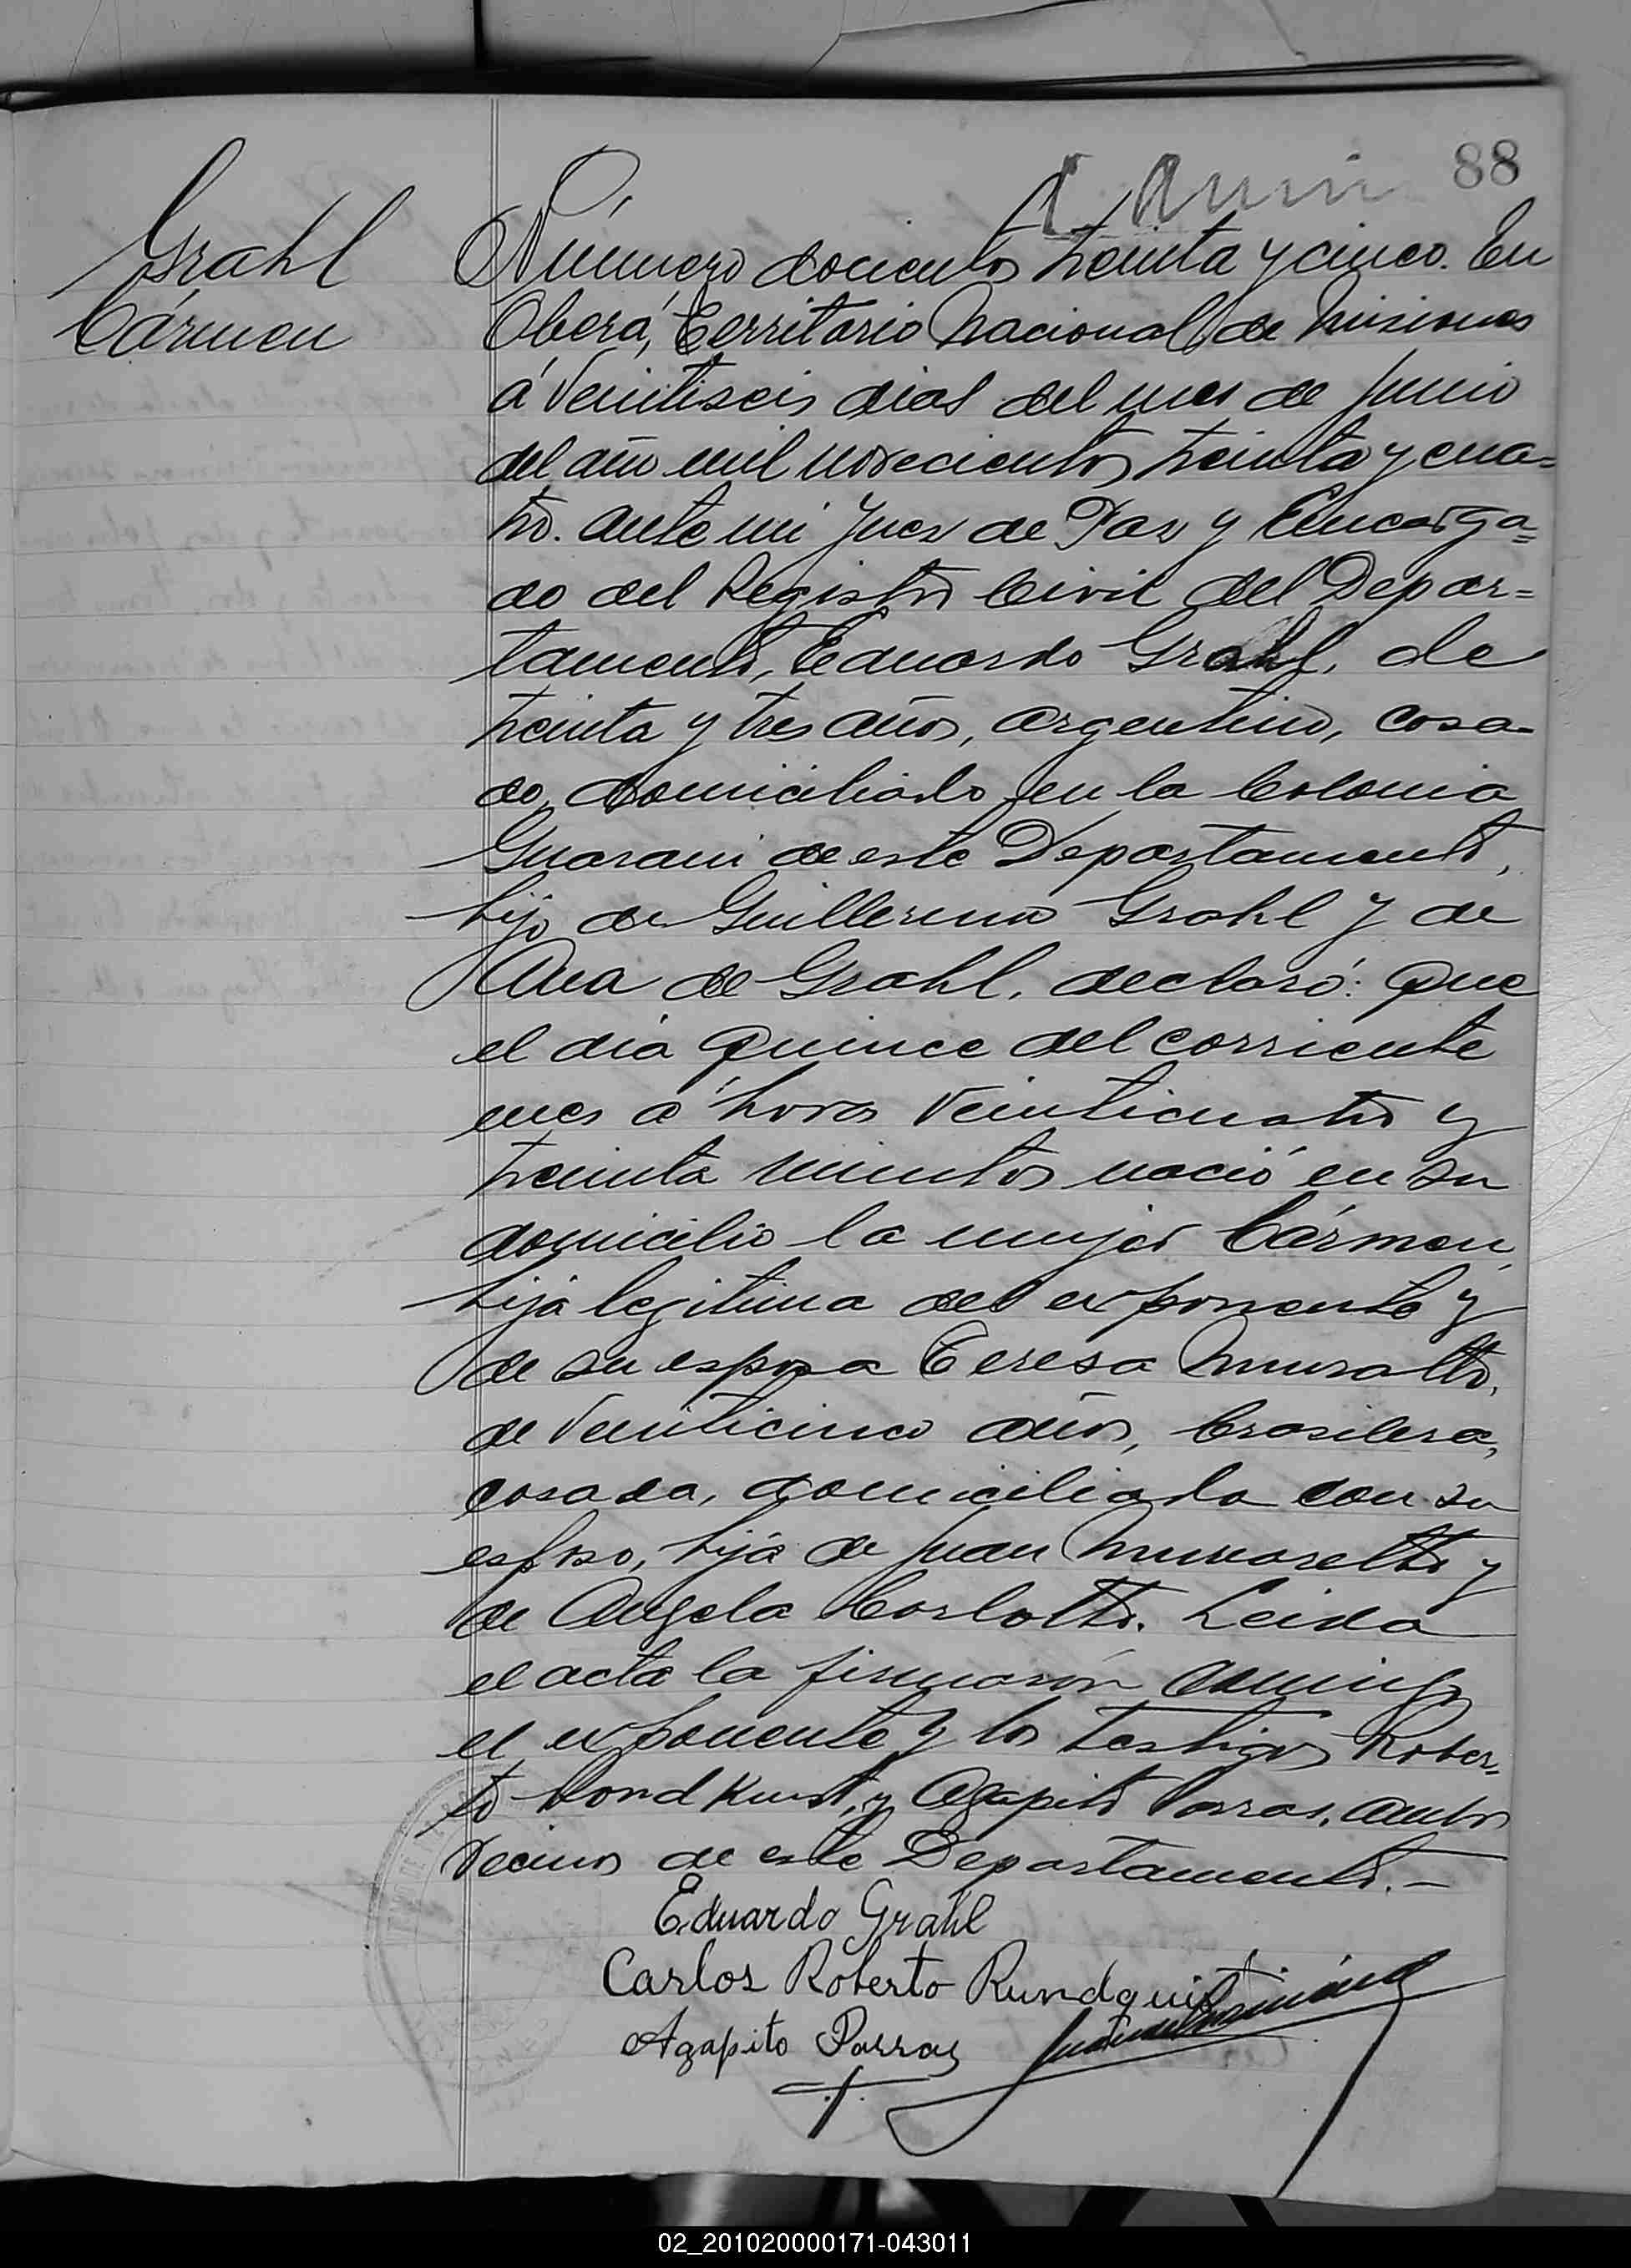 88
Grahl
Cármen
Número docientos treinta y cinco. En
Oberá, Territorio Nacional de Misiones
á veintiseis dias del mes de Junio
del año mil novecientos treinta y cua=
tro. ante mi Juez de Paz y Encarga=
do del Registro Civil del Depar=
tamento, Eduardo Grahl, de
treinta y tres años, argentino, casa-
do, domiciliado en la Colonia
Guarani de este Departamento,
hijo de Guillermo Grahl y de
Ana de Grahl, declaró: que
el dia quince del corriente
mes á horas veinticuatro y
treinta minutos nació en su
domicilio la mujer Cármen,
hija legitima del exponente y
de su esposa Teresa Muralto,
de veinticinco años, brasilera,
casada, domiciliada con su
esposo, hija de Juan y
de Angela Carlotto. Leida
el acta la firmaron conmigo
el exponente y los testigos Rober-
to y Agapito Parras, ambos
vecinos de este Departamento.-
Eduardo Grahl
Carlos Roberto Rundquist
Agapito Parras
02_201020000171-043011